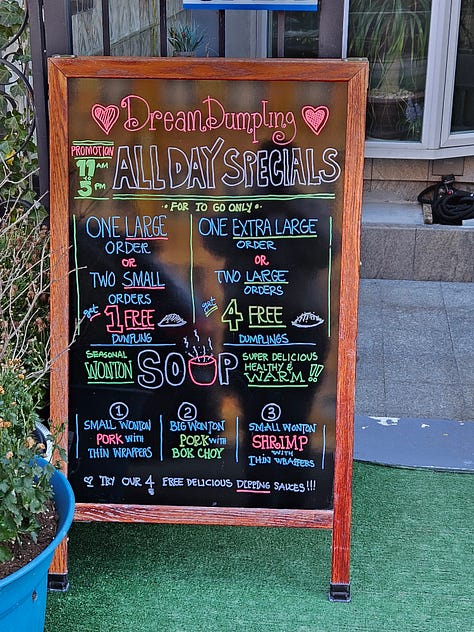 DreamDumpling
PROMOTION
11 AM
TO
5 PM
ALL DAY SPECIALS
FOR TO GO ONLY
ONE LARGE
ORDER
OR
TWO SMALL
ORDERS
get 1 FREE
DUMPLING
ONE EXTRA LARGE
ORDER
OR
TWO LARGE
ORDERS
get 4 FREE
DUMPLINGS
SEASONAL
WONTON
SOUP
SUPER DELICIOUS
HEALTHY &
WARM!!
1
SMALL WONTON
PORK WITH
THIN WRAPPERS
2
BIG WONTON
PORK WITH
BOK CHOY
3
SMALL WONTON
SHRIMP
WITH
THIN WRAPPERS
TRY OUR 4 FREE DELICIOUS DIPPING SAUCES!!!